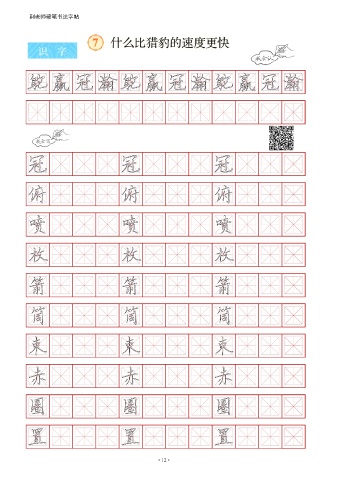 老师硬笔书法字帖
识 字
7 什么比猎豹的速度更快
我会认
鸵赢冠瀚鸵赢冠瀚鸵赢冠瀚
我会写
冠 冠 冠
俯 俯 俯
喷 喷 喷
枚 枚 枚
箭 箭 箭
筒 筒 筒
束 束 束
赤 赤 赤
圈 圈 圈
置 置 置
·12·